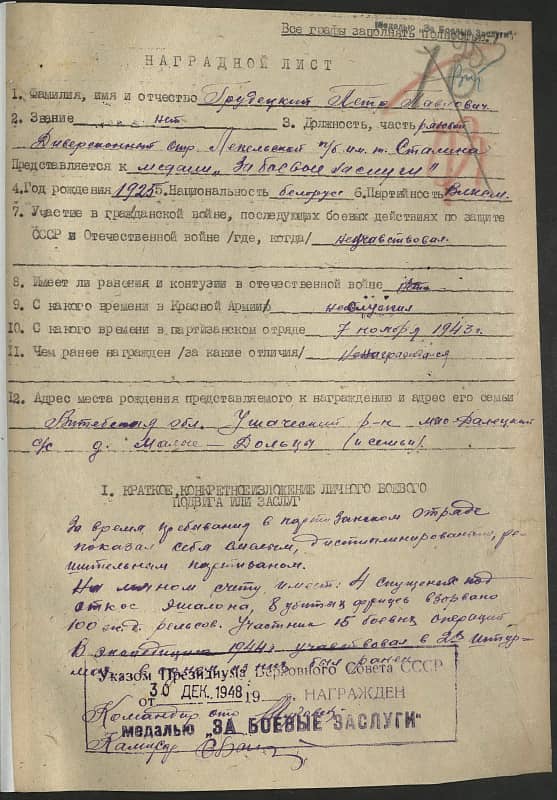 медалью „За Боевые Заслуги"
Все графы заполнять полностью.
НАГРАДНОЙ ЛИСТ
1. Фамилия, имя и отчество Грудецкий Петр Павлович
2. Звание нет 3. Должность, часть
Диверсионный отр. Лепельской п/б им. т. Сталина
Представляется к медали „За боевые заслуги"
4. Год рождения 1925 5. Национальность белорус 6. Партийность Влксм.
7. Участие в гражданской войне, последующих боевых действиях по защите
СССР и Отечественной войне /где, когда/ не участвовал.
8. Имеет ли ранения и контузии в отечественной войне
9. С какого времени в Красной Армии не служил
10. С какого времени в партизанском отряде 7 ноября 1943 г.
11. Чем ранее награжден /за какие отличия/ не награждался
12. Адрес места рождения представляемого к награждению и адрес его семьи
Витебская обл. Ушачский р-н
с/с д. Малые - Дольцы (и семьи).
I. КРАТКОЕ, КОНКРЕТНОЕ ИЗЛОЖЕНИЕ ЛИЧНОГО БОЕВОГО
ПОДВИГА ИЛИ ЗАСЛУГ
За время пребывания в партизанском отряде
показал себя смелым, дисциплинированным, ре-
шительным партизаном.
На личном счету имеет: 4 спущенных под
откос эшалона, 8 убитых фрицев взорвано
100 рельсов. Участник 15 боевых операций
В экспедицию 1944 г. участвовал в 23 штур-
мах в одном из них был ранен
Указом Президиума Верховного Совета СССР
от 30 ДЕК. 1948 19 г. НАГРАЖДЕН
Командир отр.
медалью „ЗА БОЕВЫЕ ЗАСЛУГИ"
Комиссар